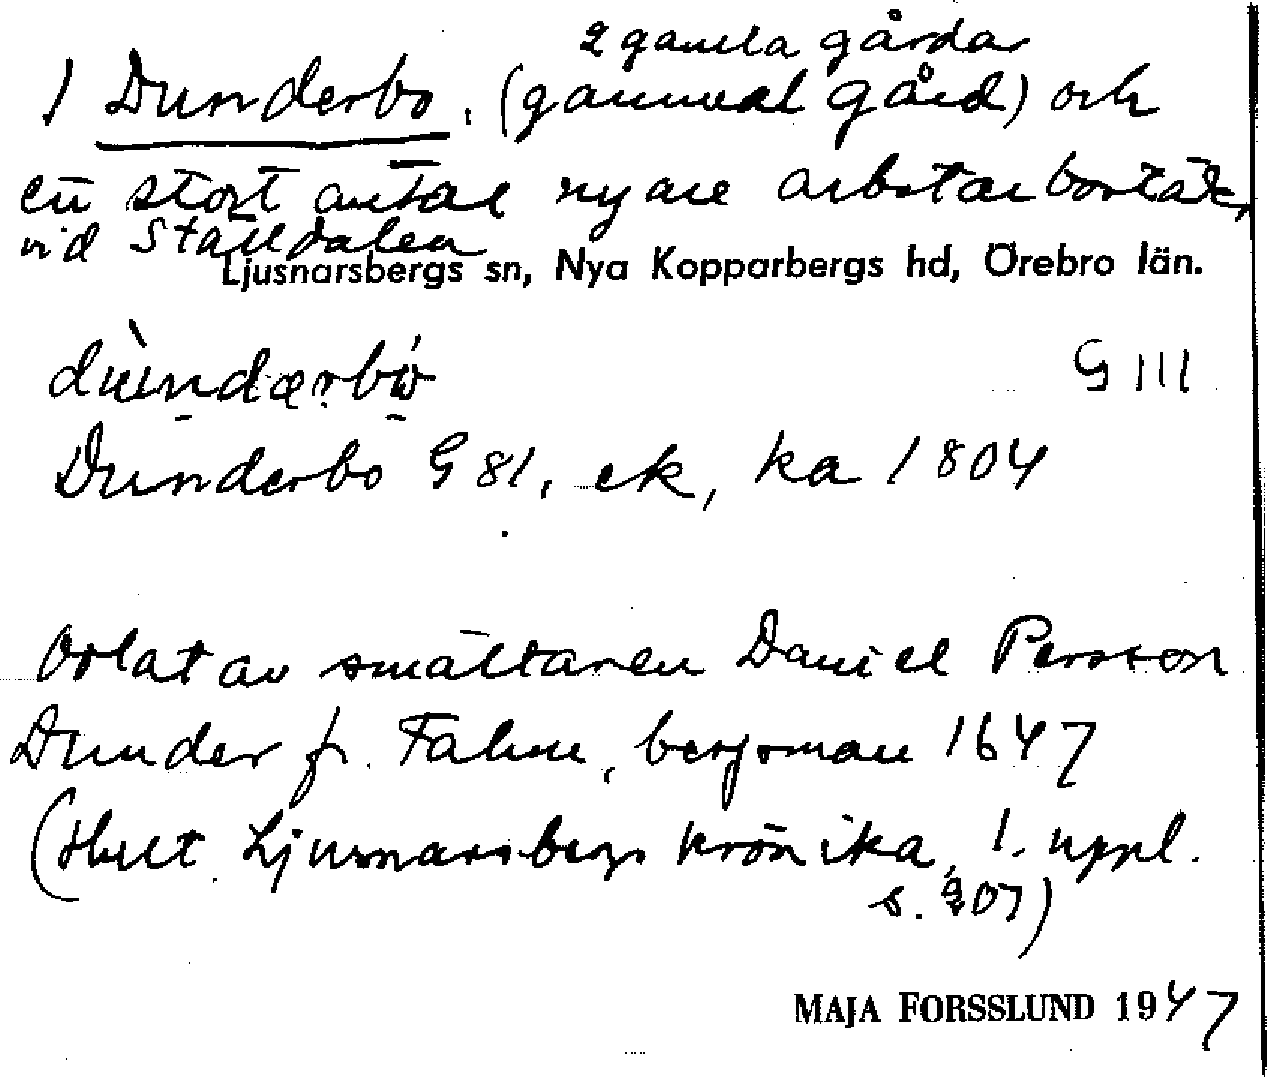 2 gamla gårdar
1 Dunderbo. (gammal gård) och
ett stort antal nyare arbetarbostäder
vid Ställdalen
Ljusnarsbergs sn, Nya Kopparbergs hd, Örebro län.
G III
Dunderbo G 81, ek, ka 1804
av smältaren Daniel Persson
Dunder fr. Falun, bergsman 1647
(Hult Ljusnarsbergs krönika, 1. uppl.
s. 307)
MAJA FORSSLUND 1947